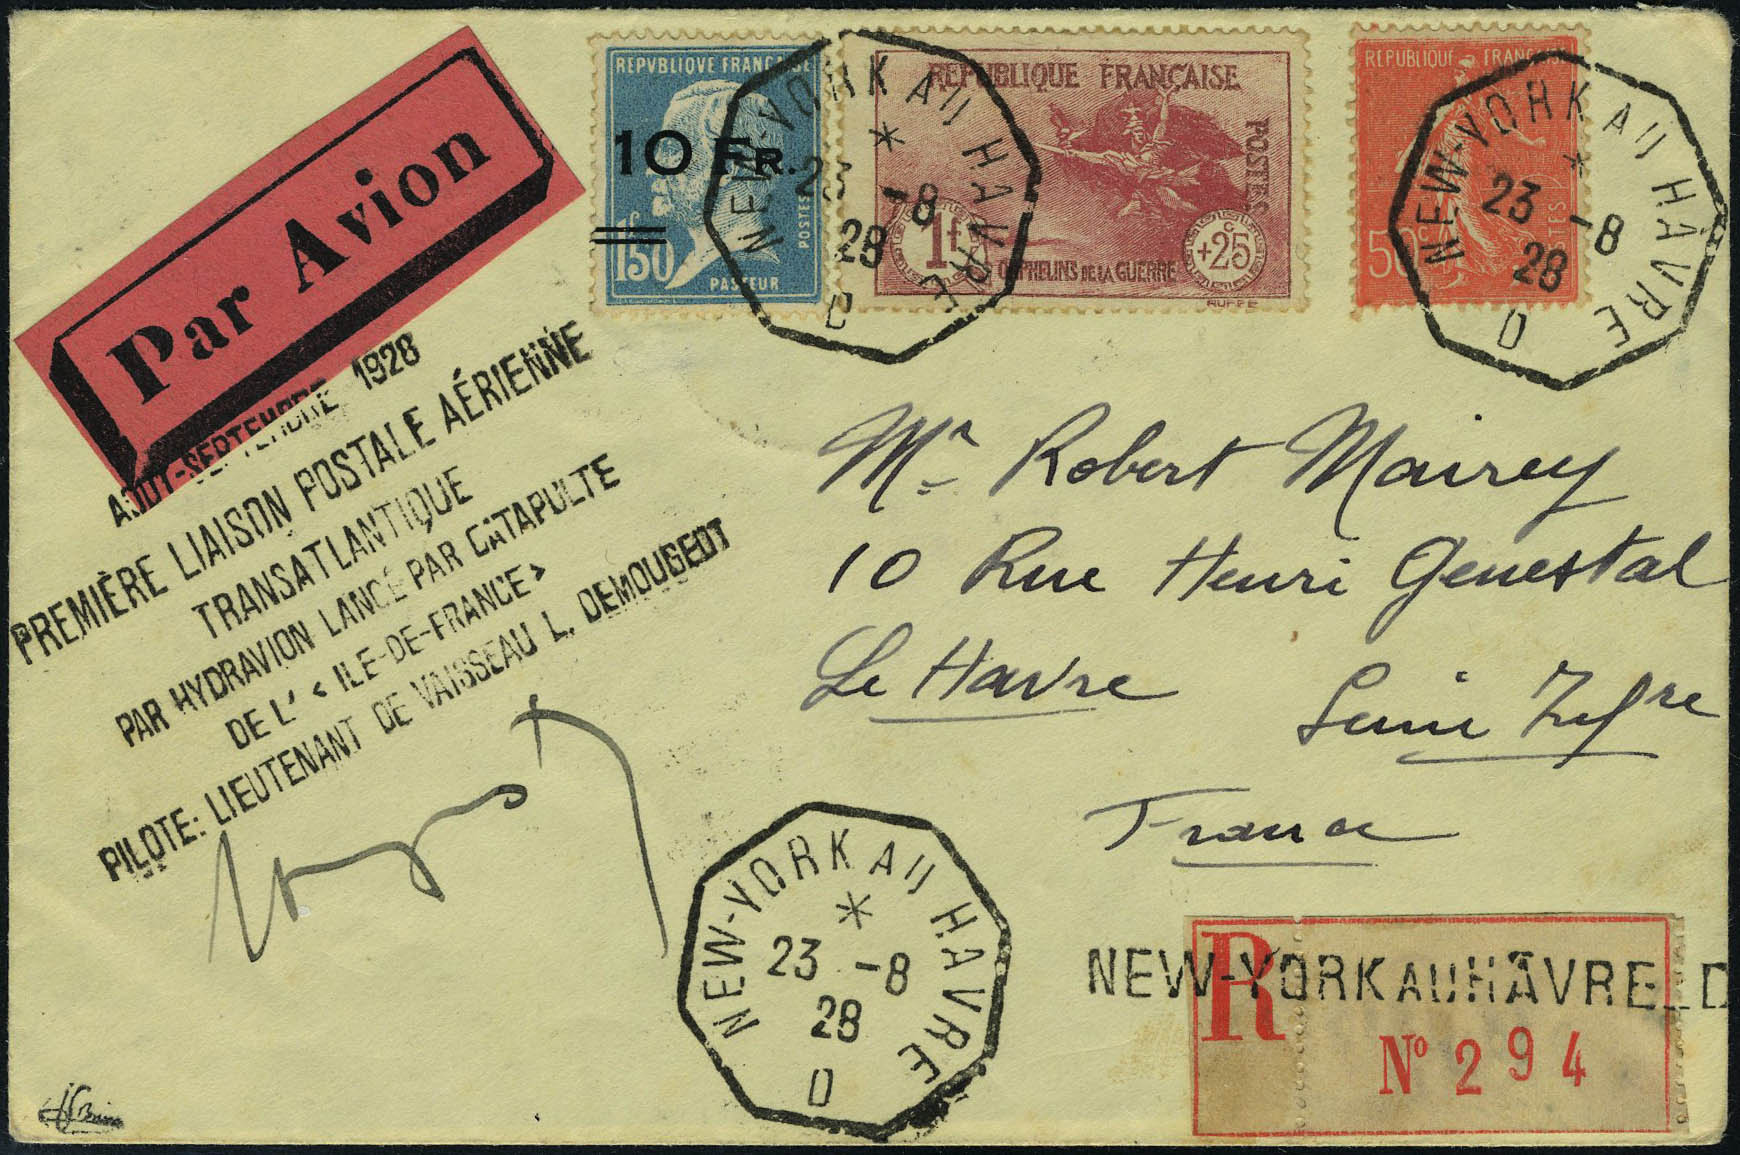 Par Avion
REPVBLIQVE FRANÇAISE
10 FR.
1F 50
POSTES
PASTEUR
REPUBLIQUE FRANÇAISE
POSTES
1F
+25c
ORPHELINS DE LA GUERRE
RUFFE
REPUBLIQUE FRANÇAISE
50c
POSTES
NEW-YORK AU HAVRE
23 -8
28
D
NEW-YORK AU HAVRE
23 -8
28
D
AOUT-SEPTEMBRE 1928
PREMIÈRE LIAISON POSTALE AÉRIENNE
TRANSATLANTIQUE
PAR HYDRAVION LANCÉ PAR CATAPULTE
DE L' < ILE-DE-FRANCE>
PILOTE: LIEUTENANT DE VAISSEAU L. DEMOUGEOT
Mr Robert Mairey
10 Rue Henri Genestal
Le Havre
Seine Infre
France
NEW-YORK AU HAVRE
23 -8
28
D
NEW-YORK AU HAVRE_D
R
No 294